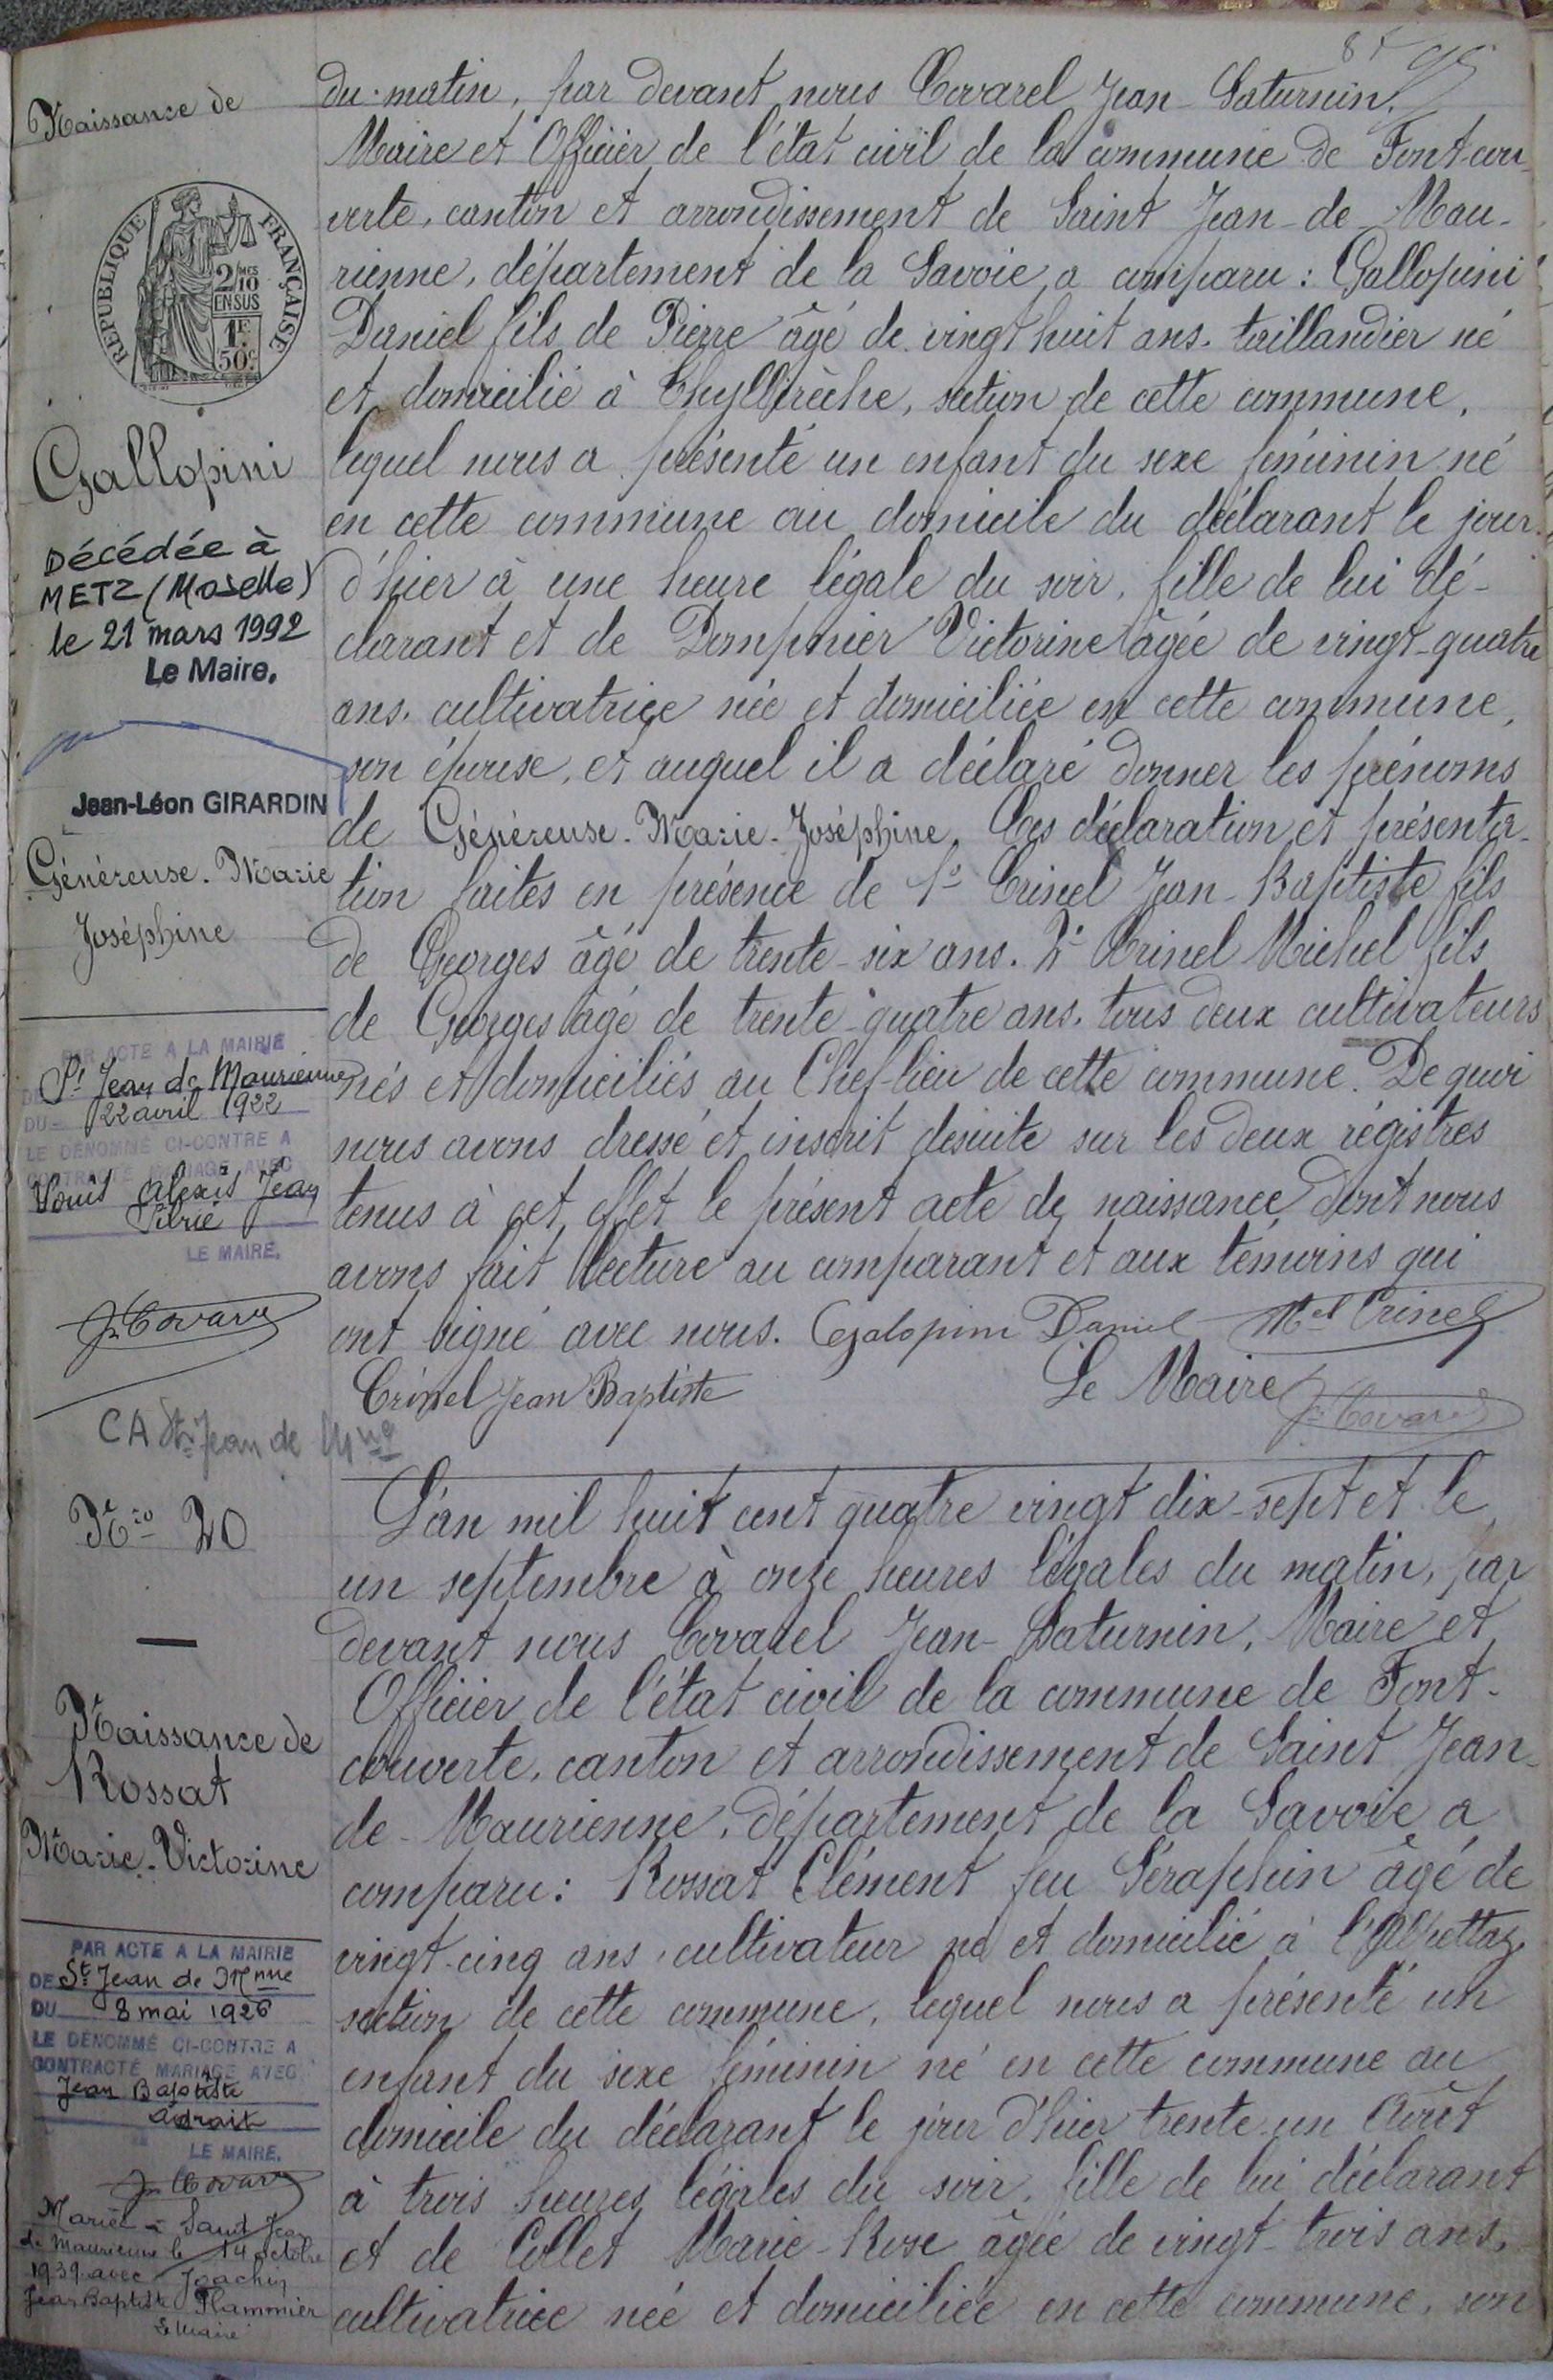 Naissance de
RÉPUBLIQUE FRANÇAISE
2/10 MES
EN SUS
1F.
50c.
Gallopini
Décédée à
METZ (Moselle)
le 21 mars 1992
Le Maire.
Jean-Léon GIRARDIN
Généreuse-Marie
Joséphine
PAR ACTE A LA MAIRIE
DE St Jean de Maurienne
DU 22 avril 1922
LE DÉNOMMÉ CI-CONTRE A
CONTRACTÉ MARIAGE AVEC
Alexis Jean
LE MAIRE.
J. Covarel
CA St Jean de Mne
Nro 20
Naissance de
Rossat
Marie-Victorine
PAR ACTE A LA MAIRIE
DE St Jean de Mnne
DU 8 mai 1926
LE DÉNOMMÉ CI-CONTRE A
CONTRACTÉ MARIAGE AVEC
Jean Baptiste
Adrait
LE MAIRE.
J. Covarel
Mariée à Saint Jean
de Maurienne le 14 octobre
1939 avec Joachim
Jean Baptiste Flammier
Le Maire
du matin, par devant nous Covarel Jean-Saturnin,
Maire et Officier de l'état civil de la commune de Font-cou-
verte, canton et arrondissement de Saint Jean-de-Mau-
rienne, département de la Savoie, a comparu : Gallopini
Daniel fils de Pierre âgé de vingt huit ans, taillandier né
et domicilié à, section de cette commune,
lequel nous a présenté un enfant du sexe féminin né
en cette commune au domicile du déclarant le jour
d'hier à une heure légale du soir, fille de lui dé-
clarant et de Dompnier Victorine âgée de vingt-quatre
ans, cultivatrice née et domiciliée en cette commune,
son épouse, et auquel il a déclaré donner les prénoms
de Généreuse-Marie-Joséphine. Ces déclaration et présenta-
tion faites en présence de 1o Crinel Jean-Baptiste fils
de Georges âgé de trente-six ans. 2o Crinel Michel fils
de Georges âgé de trente-quatre ans, tous deux cultivateurs
nés et domiciliés au Chef-lieu de cette commune. De quoi
nous avons dressé et inscrit desuite sur les deux régistres
tenus à cet effet le présent acte de naissance dont nous
avons fait lecture au comparant et aux témoins qui
ont signé avec nous. Galopini Daniel Mel Crinel
Crinel Jean Baptiste Le Maire J. Covarel
L'an mil huit cent quatre vingt dix-sept et le
un septembre à onze heures légales du matin, par
devant nous Covarel Jean-Saturnin, Maire et
Officier de l'état civil de la commune de Font-
couverte, canton et arrondissement de Saint Jean-
de-Maurienne, département de la Savoie a
comparu : Rossat Clément feu Séraphin âgé de
vingt-cinq ans, cultivateur né et domicilié à
section de cette commune, lequel nous a présenté un
enfant du sexe féminin né en cette commune au
domicile du déclarant le jour d'hier trente-un Août
à trois heures légales du soir, fille de lui déclarant
et de Collet Marie-Rose âgée de vingt-trois ans,
cultivatrice née et domiciliée en cette commune, son